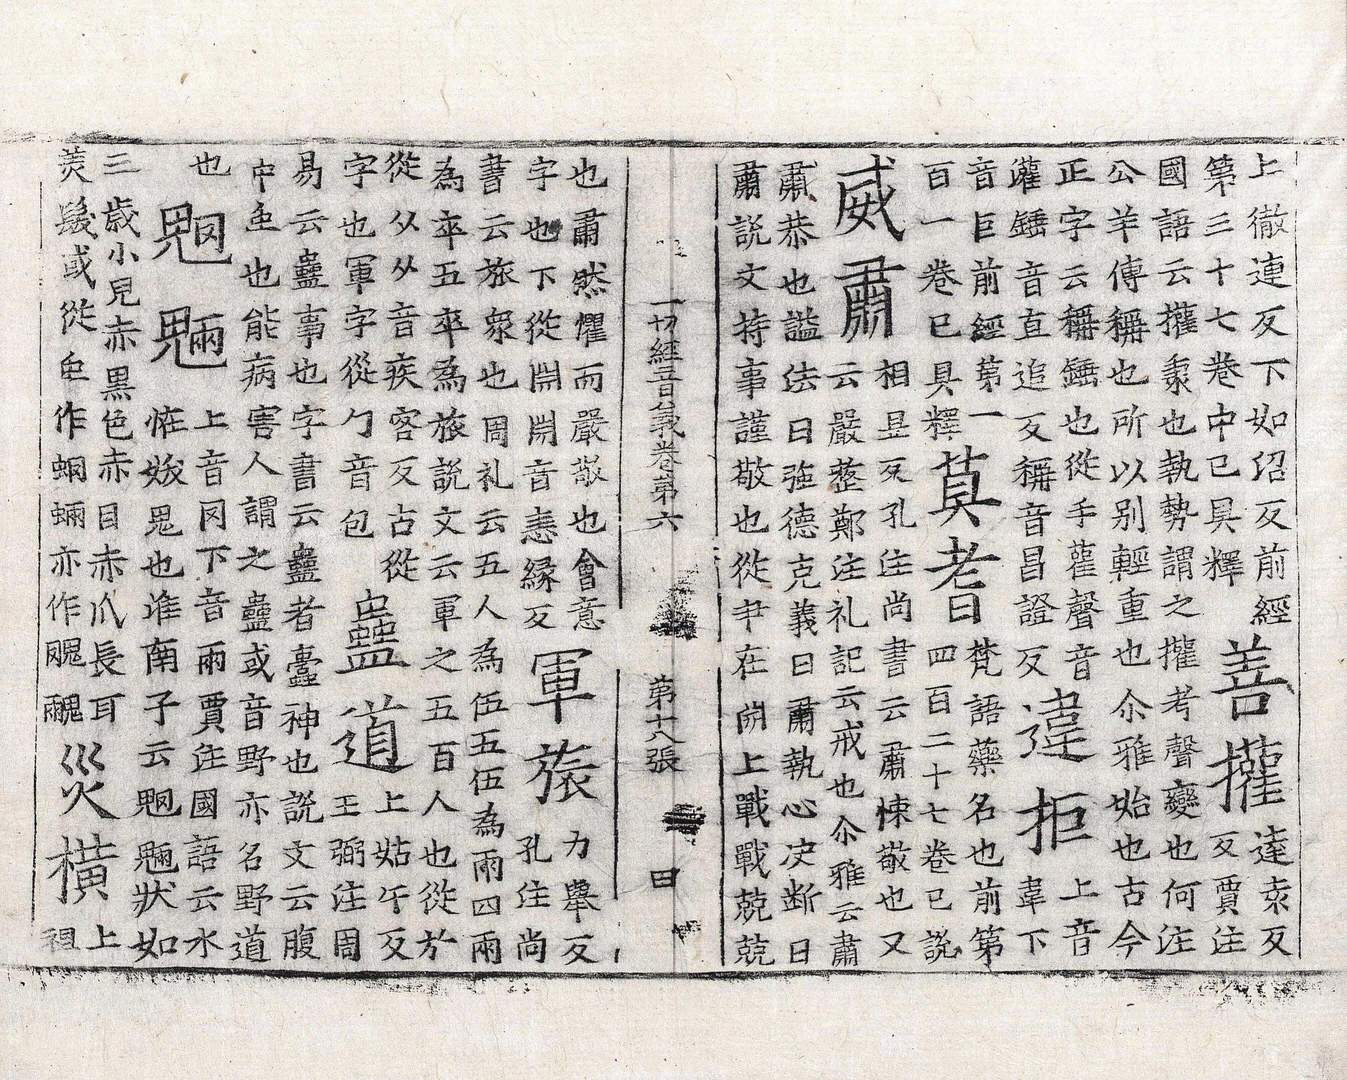 上徹連反下如沼反前經
第三十七卷中已具釋
善權
逵袁反
反賈注
國語云權秉也執勢謂之權考聲變也何注
公羊傳稱也所以別輕重也尒雅始也古今
正字云稱錘也從手雚聲音
雚錘音直追反稱音昌證反
違拒
上音
韋下
音巨前經第一
百一卷已具釋
莫耆
梵語藥名也前第
四百二十七卷已說
威肅
相昱反孔注尚書云肅悚敬也又
云嚴整鄭注礼記云戒也尒雅云肅
肅恭也謚法曰強德克義曰肅執心決断曰
肅說文持事謹敬也從肀在𣶒上戰戰兢兢
一切經音義卷第六 第十八張 田
也肅然懼而嚴敬也會意
字也下從𣶒𣶒音恚緣反
軍旅
力舉反
孔注尚
書云旅衆也周礼云五人為伍五伍為兩四兩
為卒五卒為旅說文云軍之五百人也從㫃
從从从音疾容反古從
字也軍字從勹音包
蠱道
上姑午反
王弼注周
易云蠱事也字書云蠱者蠱神也說文云腹
中虫也能病害人謂之蠱或音野亦名野道
也
魍魎
上音罔下音兩賈注國語云水
恠妭鬼也淮南子云魍魎狀如
三歲小兒赤黒色赤目赤爪長耳
美髮或從虫作蝄蜽亦作
災橫
上
祖